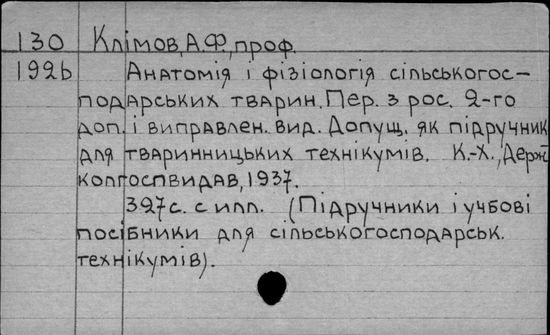 130 Клімов, А.Ф., проф.
192b Анатомія і фізіологія сільськогос-
подарських тварин. Пер. з рос. 2-го
доп. і виправлен. вид. Допущ. як підручник
для тваринницьких технікумів. К.-Х., Держ-
колгоспвидав, 1937.
327с. с илл. (Підручники і учбові
посібники для сільськогосподарськ.
технікумів).